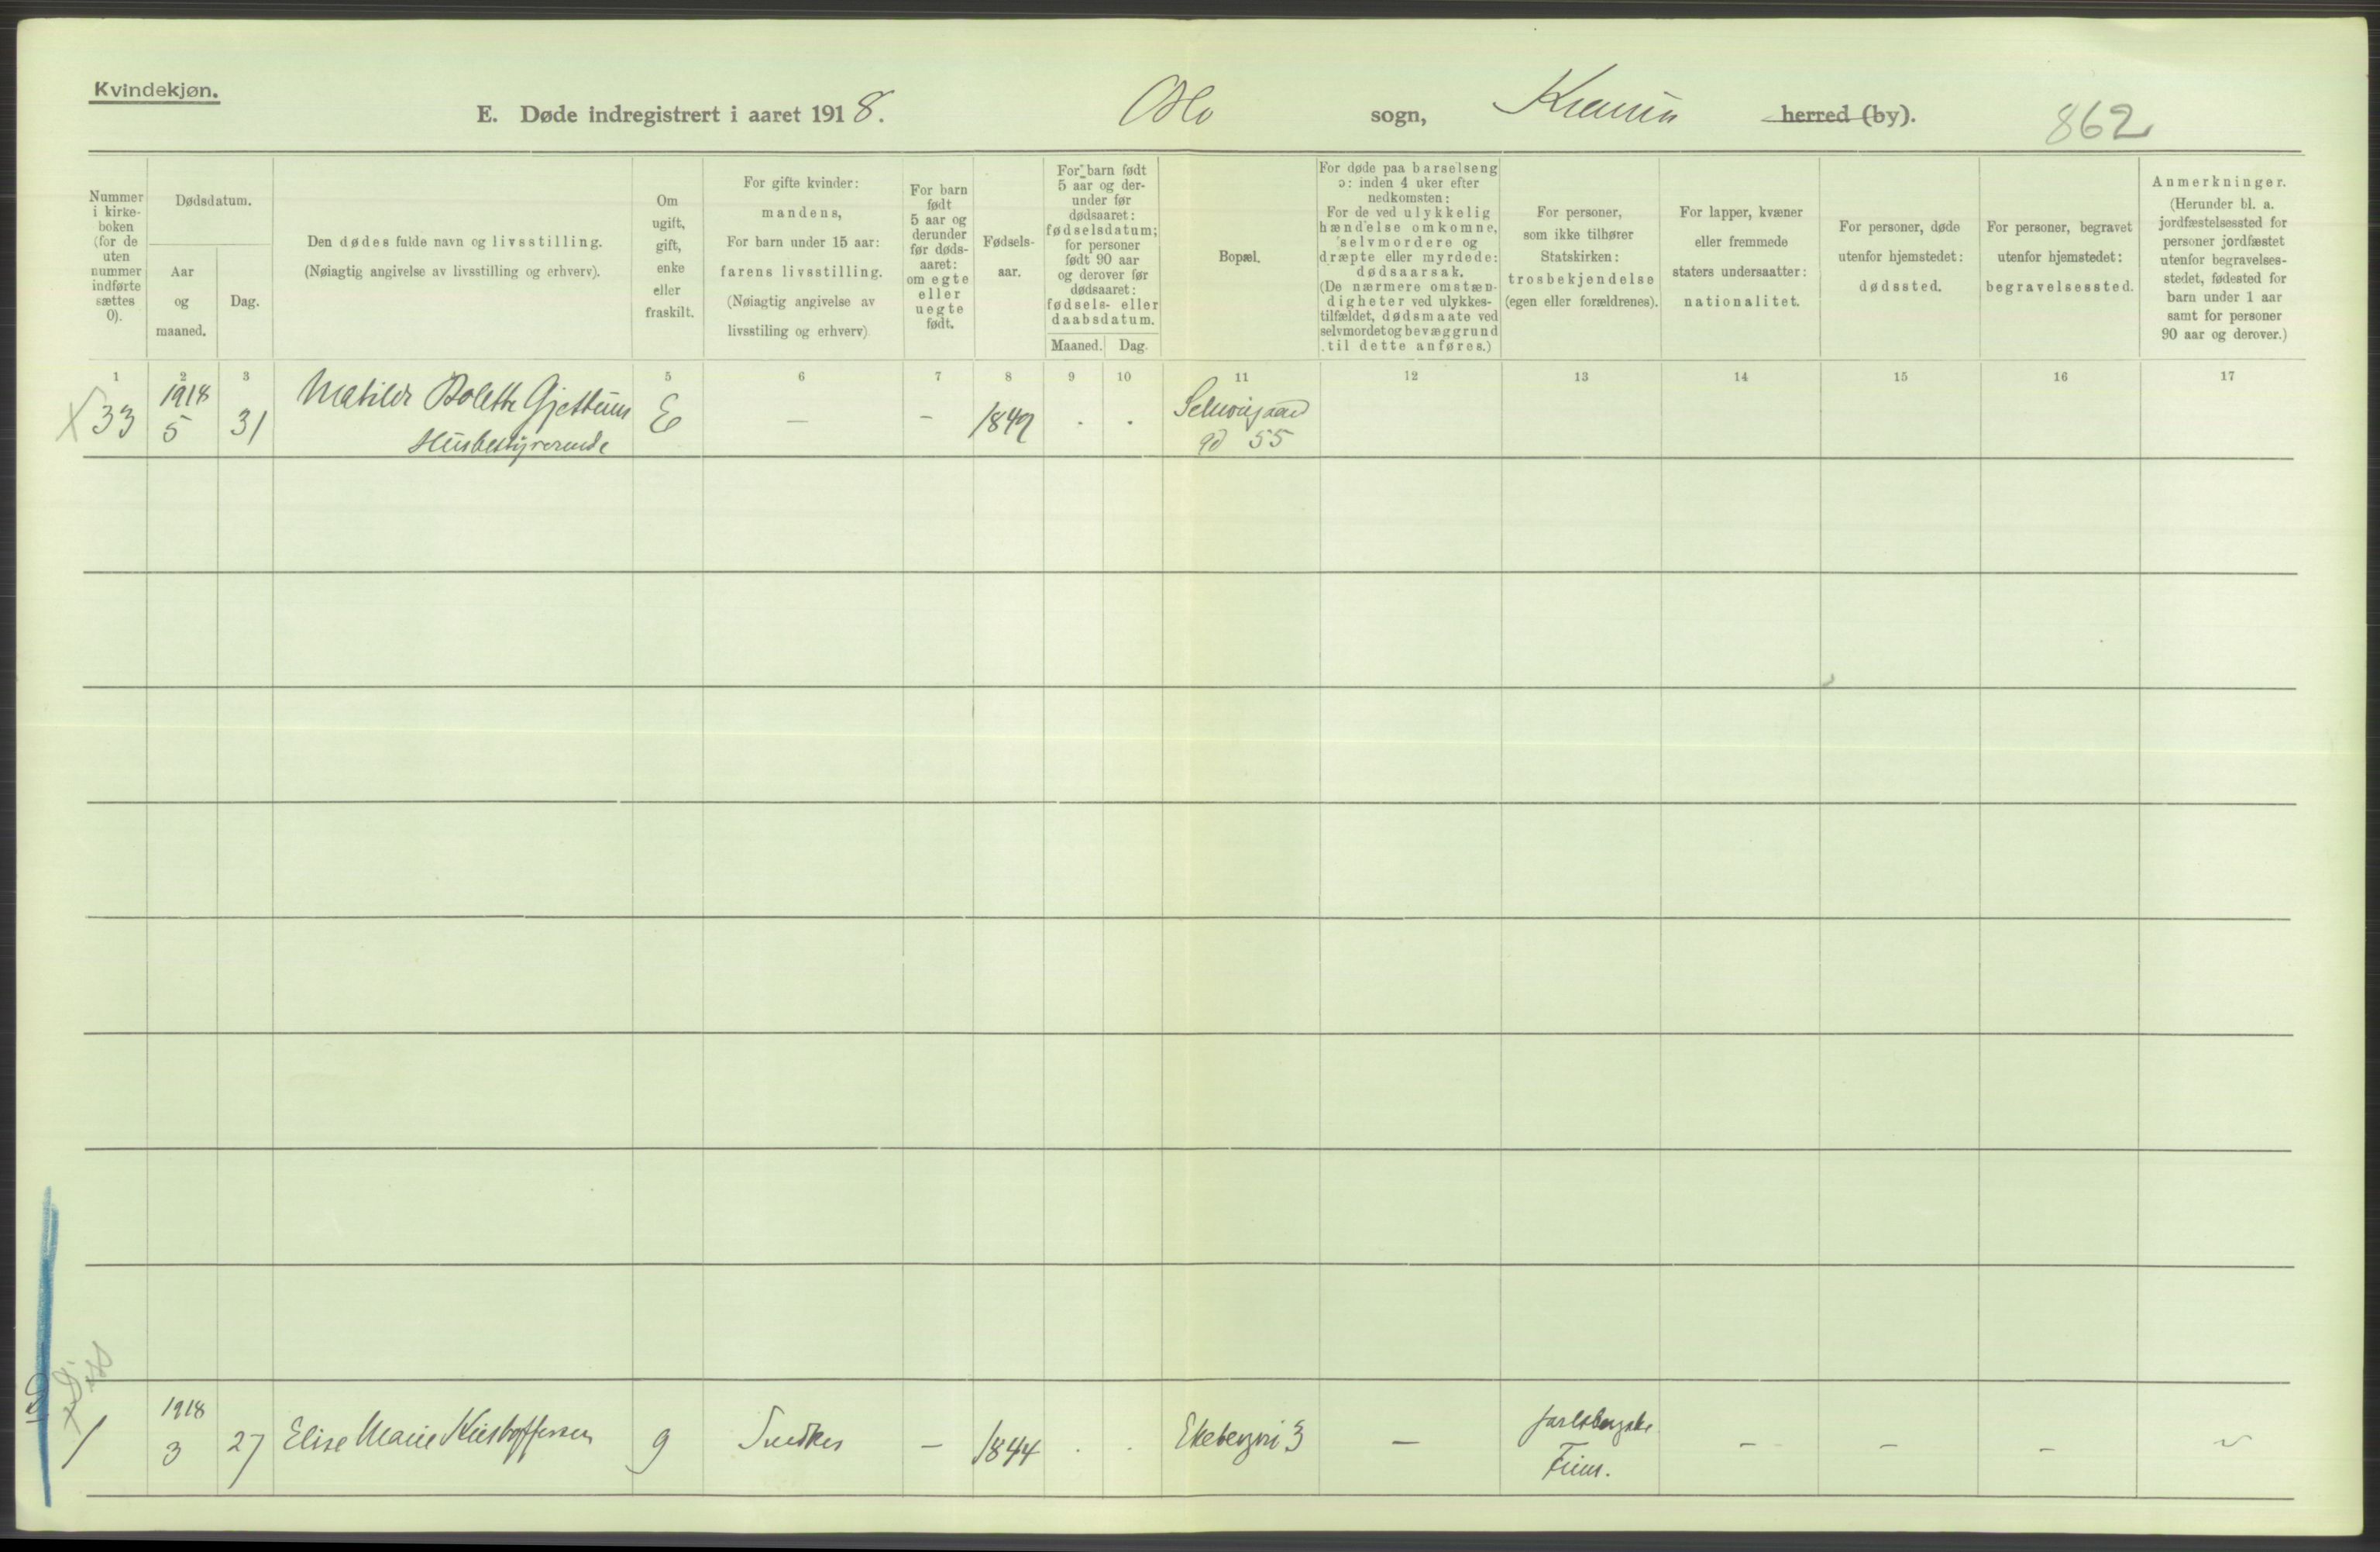 Kvindekjøn.
E. Døde indregistrert i aaret 1918. Oslo sogn, herred (by). 862
Nummer i kirke- boken (for de uten nummer indførte sættes 0).
Dødsdatum.
Aar og maaned.
Dag.
Den dødes fulde navn og livsstilling.
(Nøiagtig angivelse av livsstilling og erhverv).
Om ugift, gift, enke eller fraskilt.
For gifte kvinder:
mandens,
For barn under 15 aar:
farens livsstilling.
(Nøiagtig angivelse av
livsstiling og erhverv)
For barn født 5 aar og derunder før døds- aaret: om egte eller uegte født.
Fødsels- aar.
For barn født 5 aar og der- under før dødsaaret: fødselsdatum; for personer født 90 aar og derover før dødsaaret: fødsels- eller daabsdatum.
Maaned. Dag.
Bopæl.
For døde paa barselseng
ɔ: inden 4 uker efter
nedkomsten:
For de ved ulykkelig
hændelse omkomne,
selvmordere og
dræpte eller myrdede:
dødsaarsak.
(De nærmere omstæn-
digheter ved ulykkes-
tilfældet, dødsmaate ved
selvmordet og bevæggrund
til dette anføres.)
For personer,
som ikke tilhører
Statskirken:
trosbekjendelse
(egen eller forældrenes).
For lapper, kvæner
eller fremmede
staters undersaatter:
nationalitet.
For personer, døde
utenfor hjemstedet:
dødssted.
For personer, begravet
utenfor hjemstedet:
begravelsessted.
Anmerkninger.
(Herunder bl. a.
jordfæstelsessted for
personer jordfæstet
utenfor begravelses-
stedet, fødested for
barn under 1 aar
samt for personer
90 aar og derover.)
1 2 3 5 6 7 8 9 10 11 12 13 14 15 16 17
33 1918 5 31 Matilde Bolette Gjettum E — – 1849 . .
Husbestyrerinde 55
Diss
D
1 1918 3 27 Elise Marie Kristoffersen g Snedker – 1844 . . Ekebergvei 3 — Jarlsbergske – – – ~
Frim.